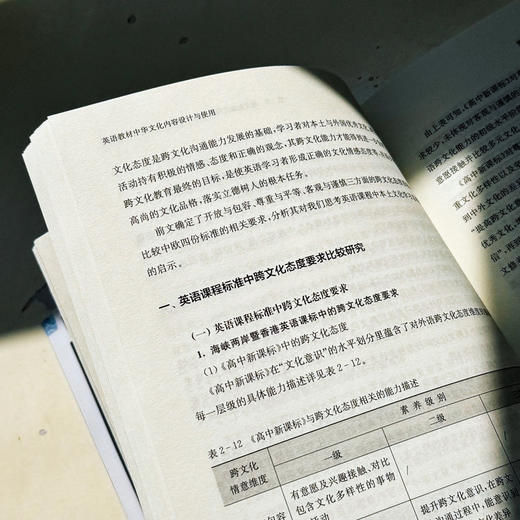 英语教材中华文化内容设计与使用
文化态度是跨文化沟通能力发展的基础，学习者对本土与外国优秀文化
活动持有积极的情感、态度和正确的观念，其跨文化能力才能得到进一
跨文化教育最终的目标，是使英语学习者形成正确的文化情感态度等
高尚的文化品格，落实立德树人的根本任务。
前文确定了开放与包容、尊重与平等、客观与谨慎三方面的跨文化态度
比较中欧四份标准的相关要求，分析其对我们思考英语课程中本土文化学习
的启示。
一、英语课程标准中跨文化态度要求比较研究
（一）英语课程标准中跨文化态度要求
1. 海峡两岸暨香港英语课标中的跨文化态度要求
（1）《高中新课标》中的跨文化态度
《高中新课标》在“文化意识”的水平划分里蕴含了对外语跨文化态度维度
每一层级的具体能力描述详见表2-12。
表2-12 《高中新课标》与跨文化态度相关的能力描述
素养级别
跨文化
情意维度
一级
二级
有意愿及兴趣接触、对比
包含文化多样性的事物
活动
/
/
提升跨文化意识，在跨文
沟通过程中，能意识到
文化差异
包容
由上表可知，《高中新课标》对
求较少，未体现对客观与谨慎的
语跨文化能力的初级水平阶
意愿接触并比较多元文化
《高中新课标》对尊重
重文化多样性以及
到中外文化的差
“提升跨文
优秀文化，
信”，再